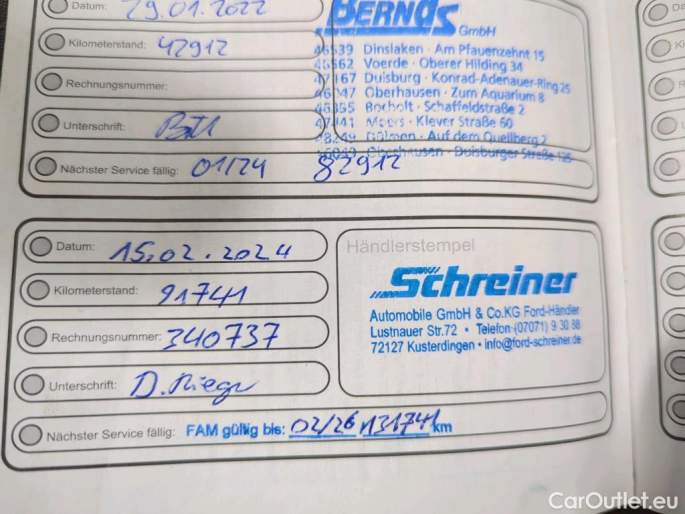 Datum: 29.01.2022
Kilometerstand: 42912
Rechnungsnummer:
Unterschrift:
Nächster Service fällig: 01/24 82912
BERNDS
GmbH
46539 Dinslaken · Am Pfauenzehnt 15
46562 Voerde · Oberer Hilding 34
47167 Duisburg · Konrad-Adenauer-Ring 25
46047 Oberhausen · Zum Aquarium 8
Bocholt · Schaffeldstraße 2
47441 Moers · Klever Straße 60
48249 Dülmen · Auf dem Quellberg 2
Oberhausen · Duisburger Straße
Datum: 15.02.2024
Kilometerstand: 91741
Rechnungsnummer: 340737
Unterschrift: D. Rieger
Nächster Service fällig: FAM gültig bis: 02/26 131741 km
Händlerstempel
Schreiner
Automobile GmbH & Co.KG Ford-Händler
Lustnauer Str.72 • Telefon (07071) 9 30 88
72127 Kusterdingen • info@ford-schreiner.de
CarOutlet.eu